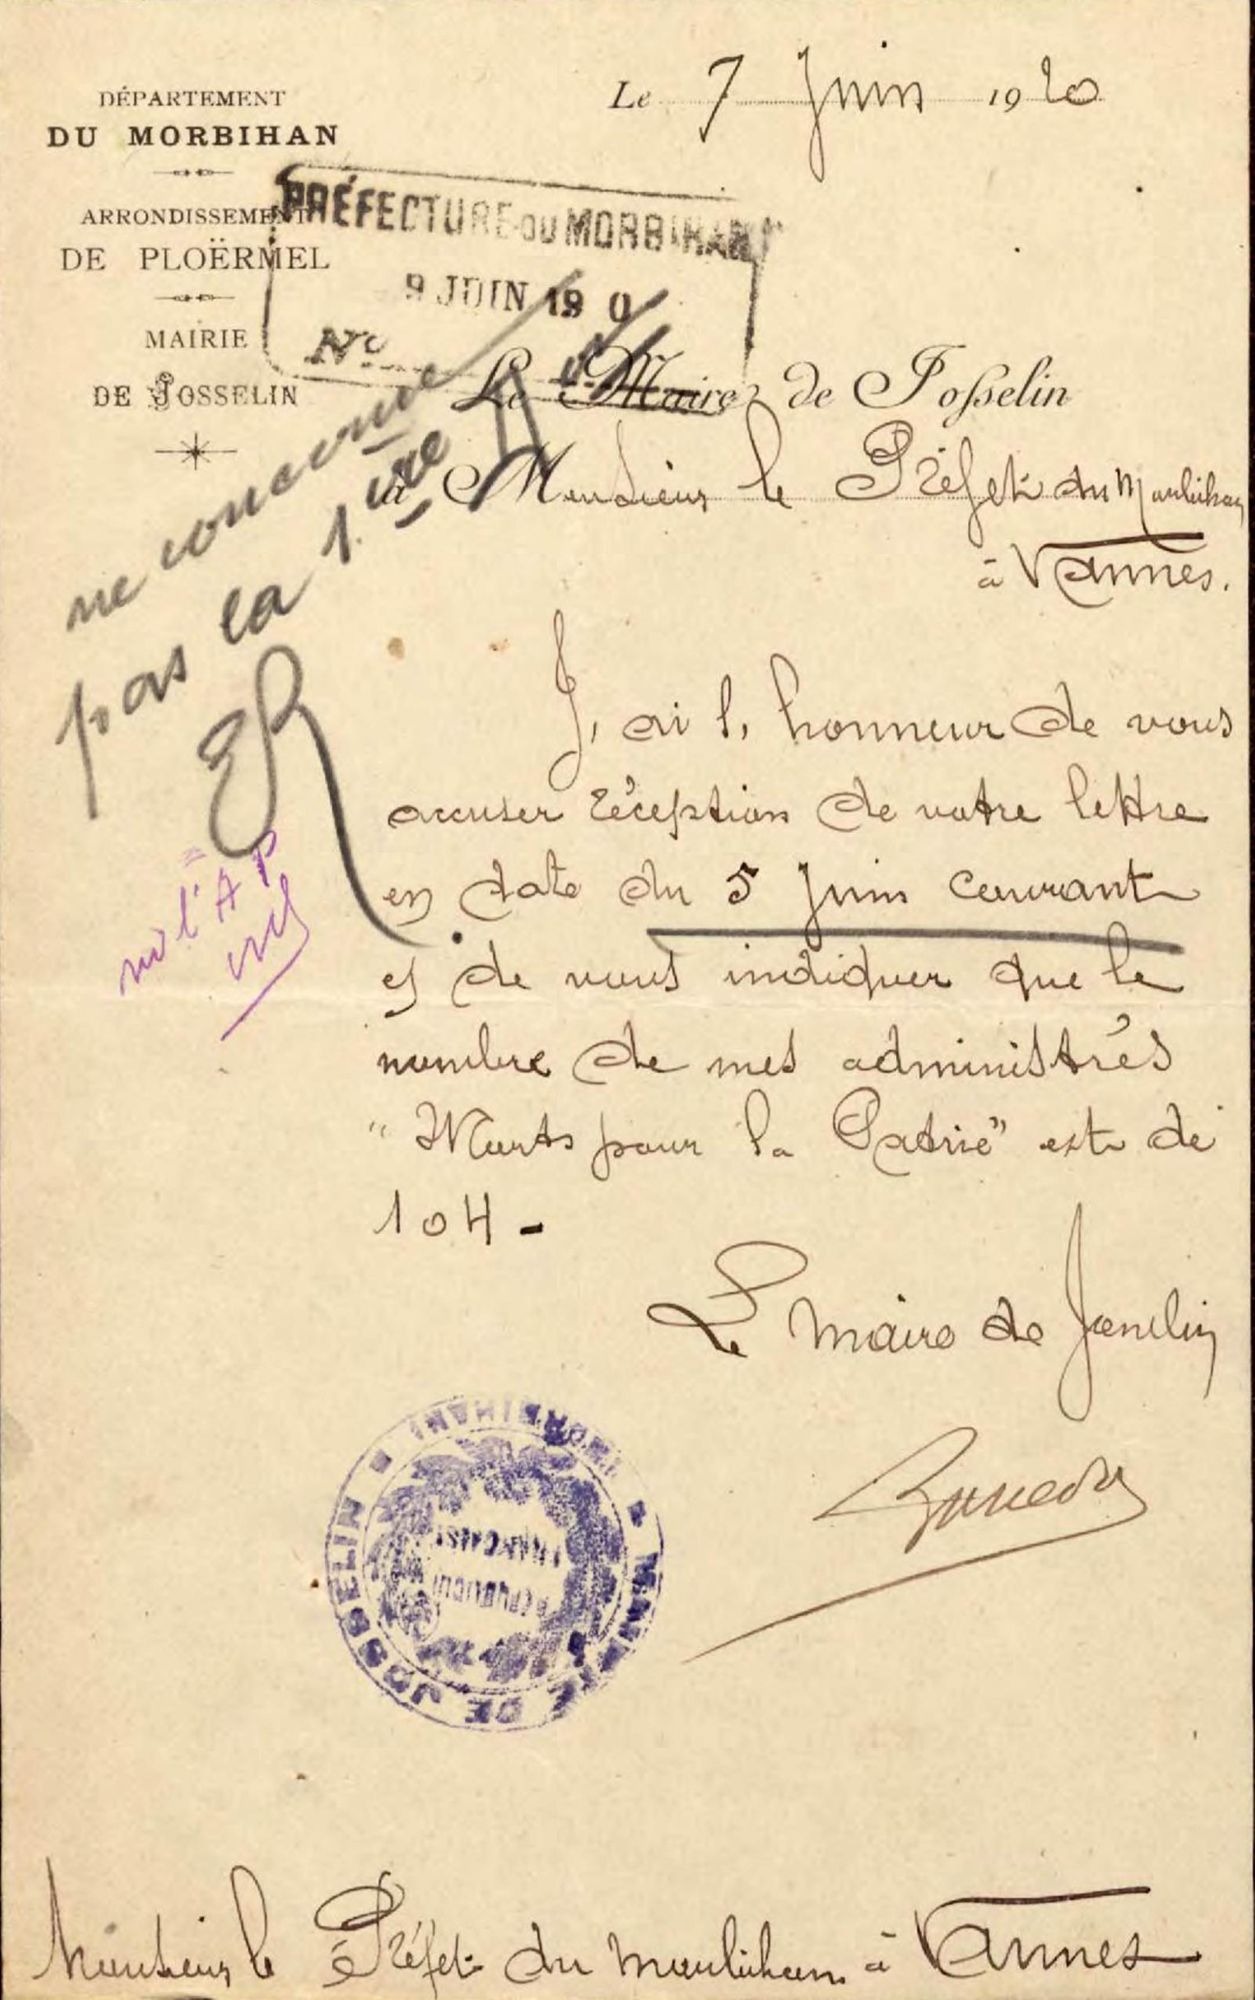 DÉPARTEMENT
DU MORBIHAN
ARRONDISSEMENT
DE PLOËRMEL
MAIRIE
DE JOSSELIN
Le 7 Juin 1920
PRÉFECTURE DU MORBIHAN
9 JUIN 19 0
No
Le Maire de Josselin
à Monsieur le Préfet du Morbihan
à Vannes.
ne concerne
pas la 1.ère
ER
ni l'AP
J'ai l'honneur de vous
accuser réception de votre lettre
en date du 5 Juin courant
et de vous indiquer que le
nombre de mes administrés
"Morts pour la Patrie" est de
104 -
Le Maire de Josselin
MAIRIE DE JOSSELIN (MORBIHAN)
RÉPUBLIQUE
FRANÇAISE
Monsieur le Préfet du Morbihan à Vannes